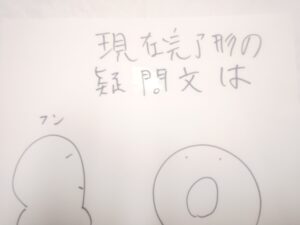 現在完了形の
疑問文は
フン